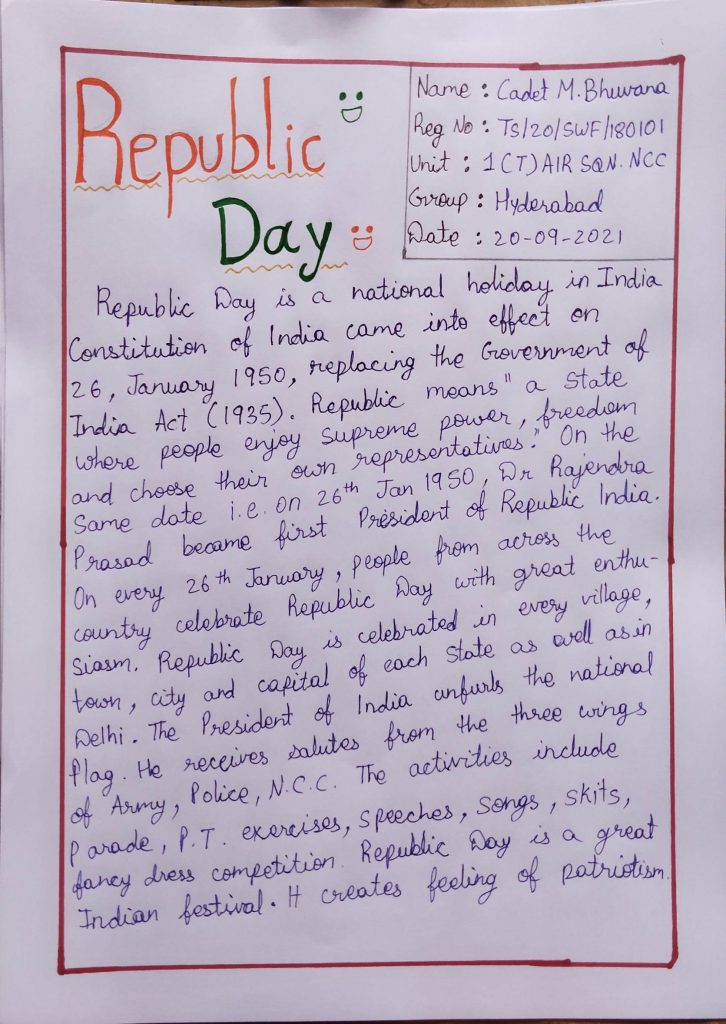 Republic
Day
Name : Cadet M.Bhuvana
Reg No : TS/20/SWF/180101
Unit : 1(T)AIR SQN. NCC
Group : Hyderabad
Date : 20-09-2021
Republic Day is a national holiday in India
Constitution of India came into effect on
26, January 1950, replacing the Government of
India Act (1935). Republic means" a State
where people enjoy Supreme power, freedom
and choose their own representatives." On the
Same date i.e. on 26th Jan 1950, Dr Rajendra
Prasad became first President of Republic India.
On every 26th January, people from across the
country celebrate Republic Day with great enthu-
siasm. Republic Day is celebrated in every village,
town, city and capital of each State as well as in
Delhi. The President of India unfurls the national
flag. He receives salutes from the three wings
of Army, Police, N.C.C. The activities include
parade, P.T. exercises, speeches, songs, skits,
fancy dress competition. Republic Day is a great
Indian festival. It creates feeling of patriotism.